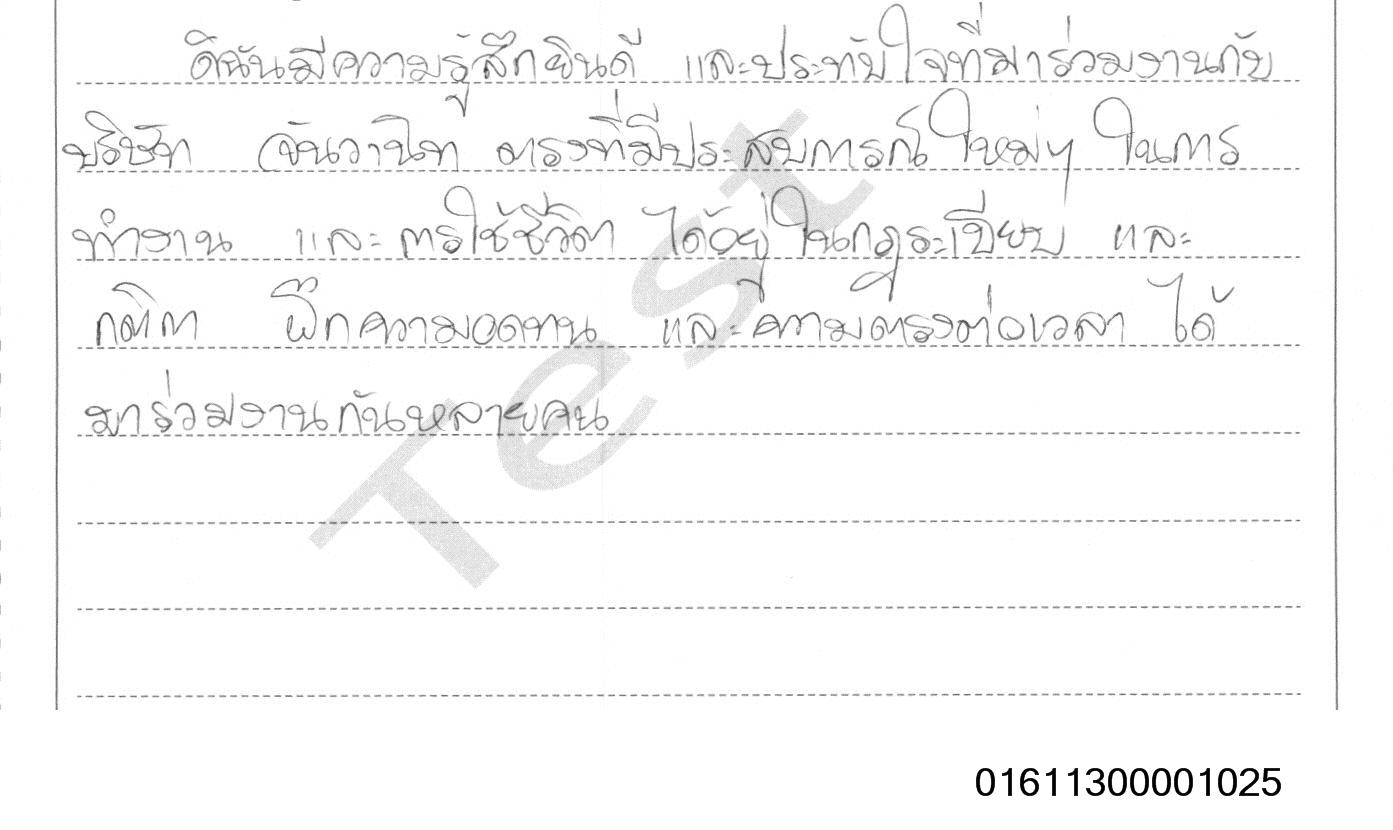 ดิฉันมีความรู้สึกยินดี และประทับใจที่มาร่วมงานกับ
บริษัท จันวานิท ตรงที่มีประสบการณ์ใหม่ๆ ในการ
ทำงาน และการใช้ชีวิต ได้อยู่ในกฎระเบียบ และ
กติกา ฝึกความอดทน และความตรงต่อเวลา ได้
มาร่วมงานกันหลายคน
Test
01611300001025